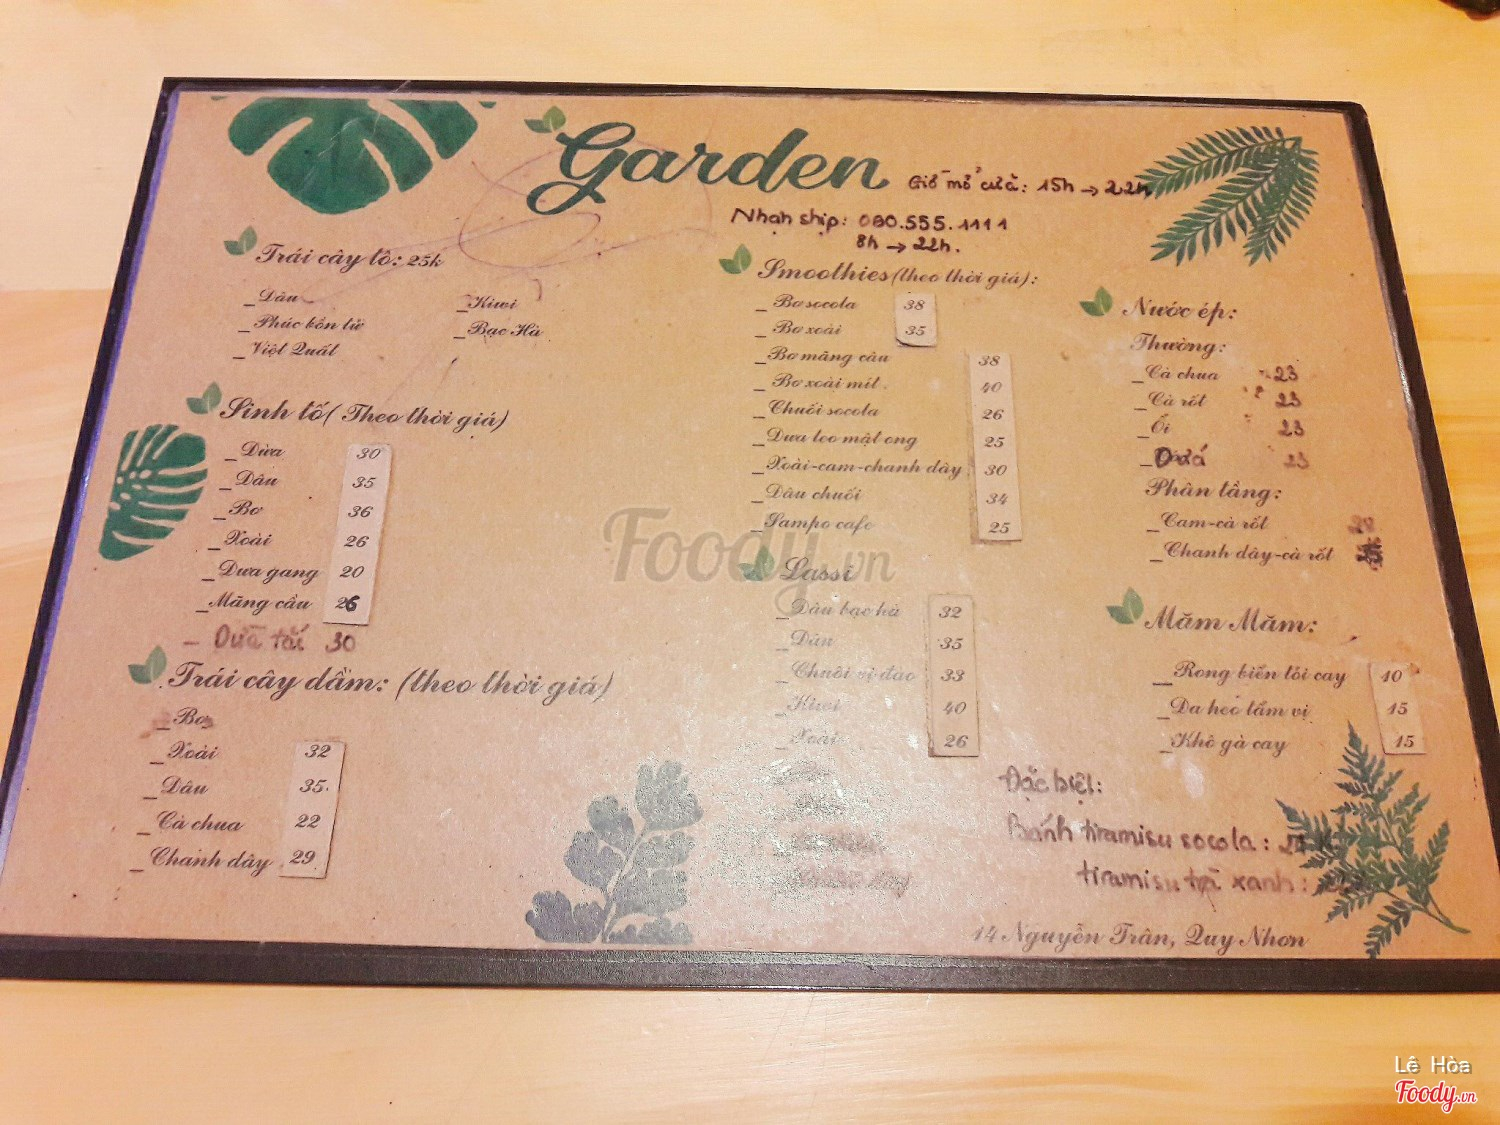 Garden
Giờ mở cửa: 15h → 22h
Nhận ship: 090.555.1111
8h → 22h.
Trái cây tô: 25k
_Dâu
_Phúc bồn tử
_Việt Quất
_Kiwi
_Bạc Hà
Sinh tố( Theo thời giá)
_Dừa 30
_Dâu 35
_Bơ 36
_Xoài 26
_Dưa gang 20
_Mãng cầu 26
- Dừa tắc 30
Trái cây dầm: (theo thời giá)
_Bơ
_Xoài 32
_Dâu 35.
_Cà chua 22
_Chanh dây 29
Smoothies(theo thời giá):
_Bơ socola 38
_Bơ xoài 35
_Bơ mãng cầu 38
_Bơ xoài mít. 40
_Chuối socola 26
_Dưa leo mật ong 25
_Xoài-cam-chanh dây 30
_Dâu chuối 34
_Sampo cafe 25
Lassi
_Dâu bạc hà 32
_Dâu 35
_Chuối vị đào 33
_Kiwi 40
_Xoài 26
Nước ép:
Thường:
_Cà chua 23
_Cà rốt 23
_Ổi 23
_Dứa 23
Phân tầng:
_Cam-cà rốt
_Chanh dây-cà rốt
Măm Măm:
_Rong biển tỏi cay 10
_Da heo tẩm vị 15
_Khô gà cay 15
Đặc biệt:
Bánh tiramisu socola:
tiramisu trà xanh:
14 Nguyễn Trân, Quy Nhơn
Foody.vn
Lê Hòa
Foody.vn